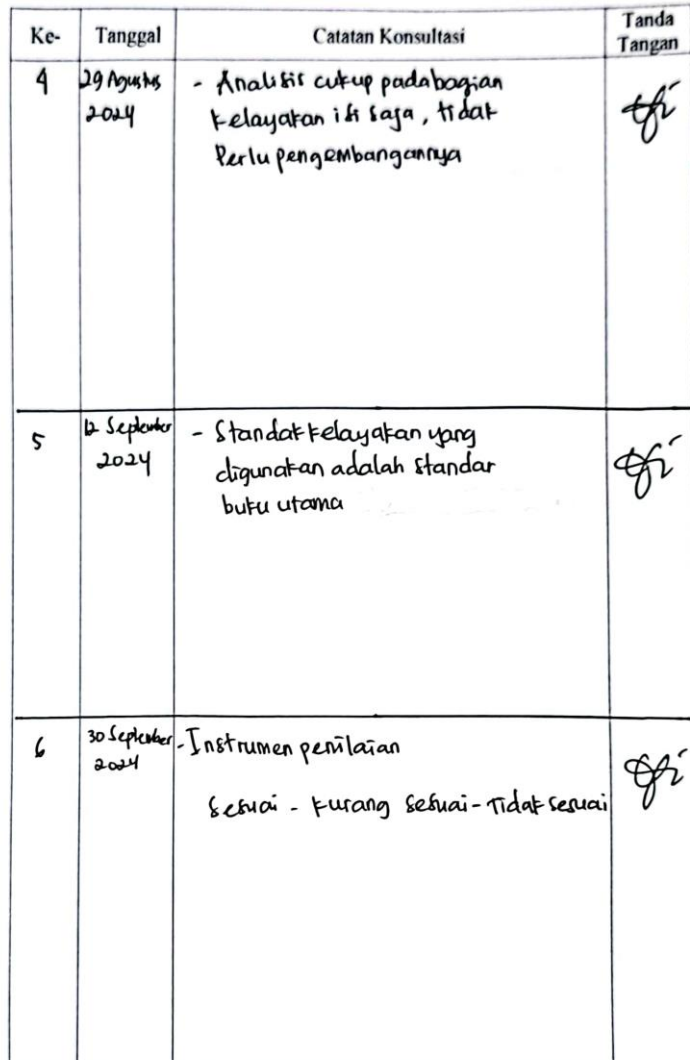 Ke- Tanggal Catatan Konsultasi Tanda Tangan
4 29 Agustus 2024 - Analisis cukup pada bagian
kelayakan isi saja, tidak
Perlu pengembangannya
5 12 September 2024 - Standar kelayakan yang
digunakan adalah standar
buku utama
6 30 September 2024 - Instrumen penilaian
sesuai - kurang sesuai - Tidak sesuai